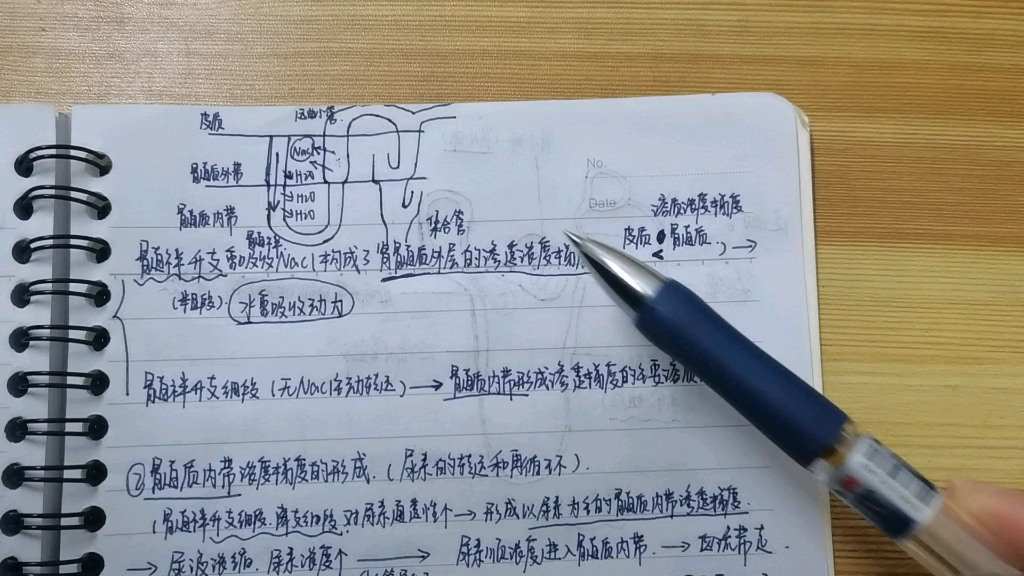 皮质 远曲小管
NaCl
髓质外带 H2O
H2O
髓质内带 H2O
集合管
No.
Date
溶质浓度梯度
皮质 < 髓质
髓袢升支重吸收NaCl构成了肾髓质外层的渗透浓度梯
髓袢
(粗段) 水重吸收动力
髓袢升支细段(无NaCl主动转运)→髓质内带形成渗透梯度的主要溶质
②髓质内带浓度梯度的形成.(尿素的转运和再循环).
(髓袢升支细段.降支细段.对尿素通透性个→形成以尿素为主的髓质内带渗透梯度.
→尿液浓缩.尿素浓度个 → 尿素顺浓度进入髓质内带.→血流带走.